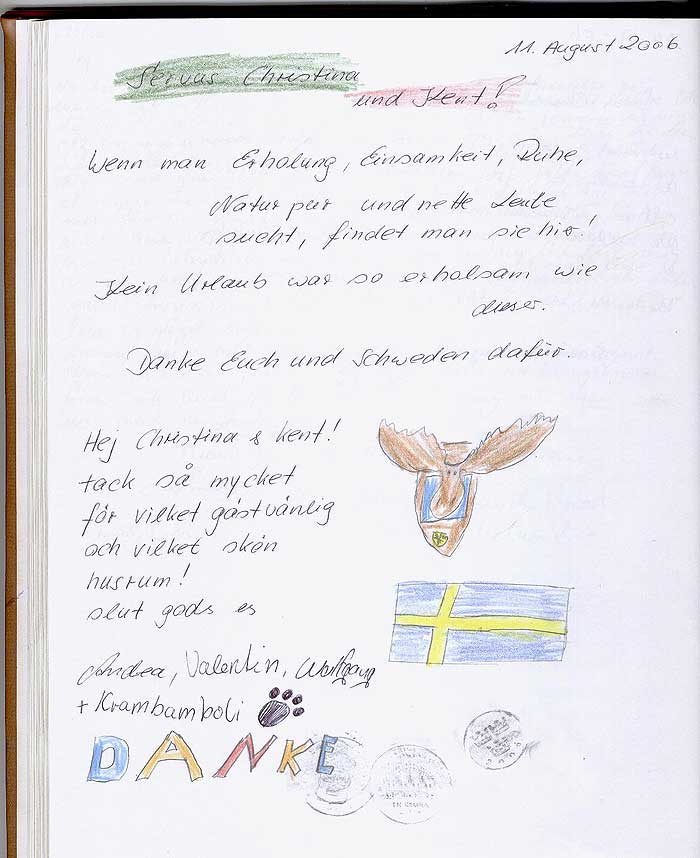 11. August 2006
Servus Christina
und Kent!
Wenn man Erholung, Einsamkeit, Ruhe,
Natur pur und nette Leute
sucht, findet man sie hier!
Kein Urlaub war so erholsam wie
dieser.
Danke Euch und Schweden dafür.
Hej Christina & Kent!
tack så mycket
för vilket gästvänlig
och vilket skön
husrum!
slut gods es
Andrea, Valentin, Wolfgang
+ Krambamboli
DANKE